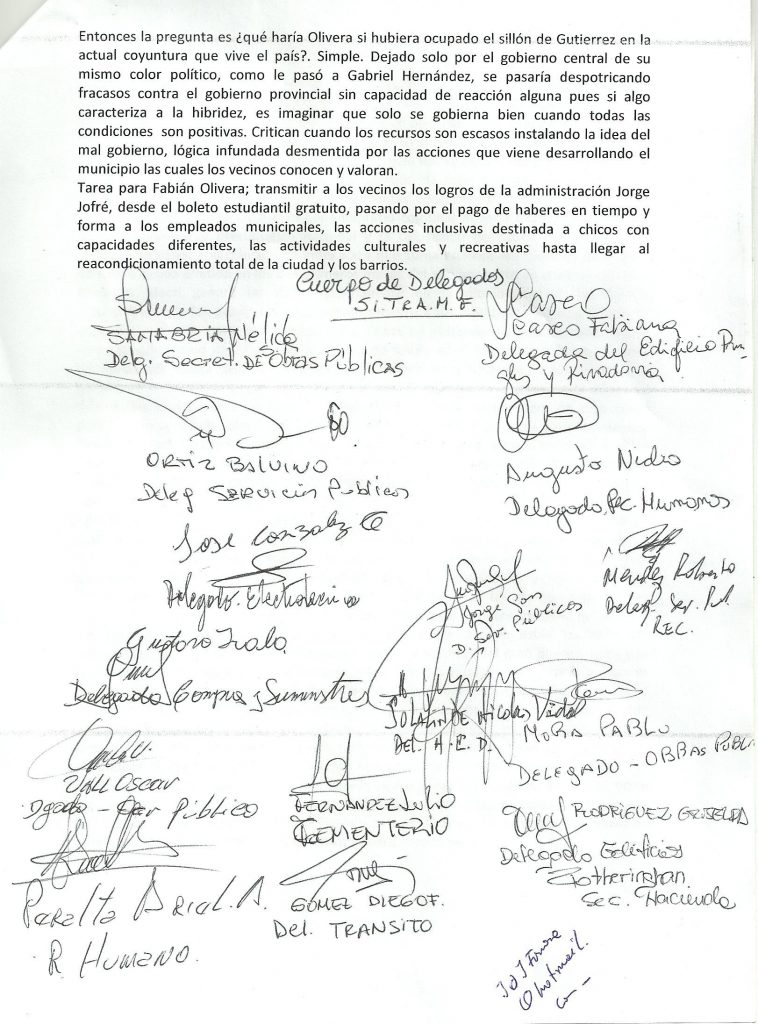 Entonces la pregunta es ¿qué haría Olivera si hubiera ocupado el sillón de Gutierrez en la
actual coyuntura que vive el país?. Simple. Dejado solo por el gobierno central de su
mismo color político, como le pasó a Gabriel Hernández, se pasaría despotricando
fracasos contra el gobierno provincial sin capacidad de reacción alguna pues si algo
caracteriza a la hibridez, es imaginar que solo se gobierna bien cuando todas las
condiciones son positivas. Critican cuando los recursos son escasos instalando la idea del
mal gobierno, lógica infundada desmentida por las acciones que viene desarrollando el
municipio las cuales los vecinos conocen y valoran.
Tarea para Fabián Olivera; transmitir a los vecinos los logros de la administración Jorge
Jofré, desde el boleto estudiantil gratuito, pasando por el pago de haberes en tiempo y
forma a los empleados municipales, las acciones inclusivas destinada a chicos con
capacidades diferentes, las actividades culturales y recreativas hasta llegar al
reacondicionamiento total de la ciudad y los barrios.
Cuerpo de Delegados
SI.TRA.M.F.
SANABRIA Nélida
Deleg. Secret. DE Obras Públicas
Caseo Fabiana
Delegada del Edificio
y Rivadavia
ORTIZ BALVINO
Deleg SERVICIOS Publicos
Augusto Nidio
Delegado Rec. Humanos
Jose Gonzalez
Delegado
Jorge
D. Serv. Públicos
Mendez Roberto
Deleg. Ser. Pub.
REC.
Gustavo
Delegado Compra y Suministros
DE Nicolas Vidal
DEL. H.C.D.
MORA PABLO
DELEGADO - OBRAS PUBL
OSCAR
Dgado - Ser Público
FERNANDEZ Julio
CEMENTERIO
RODRIGUEZ GRISELDA
Delegado Edificios
Fotheringhan
Sec. Hacienda
Peralta A.
R. HUMANO.
GOMEZ DIEGO F.
Del. TRANSITO
@hotmail.